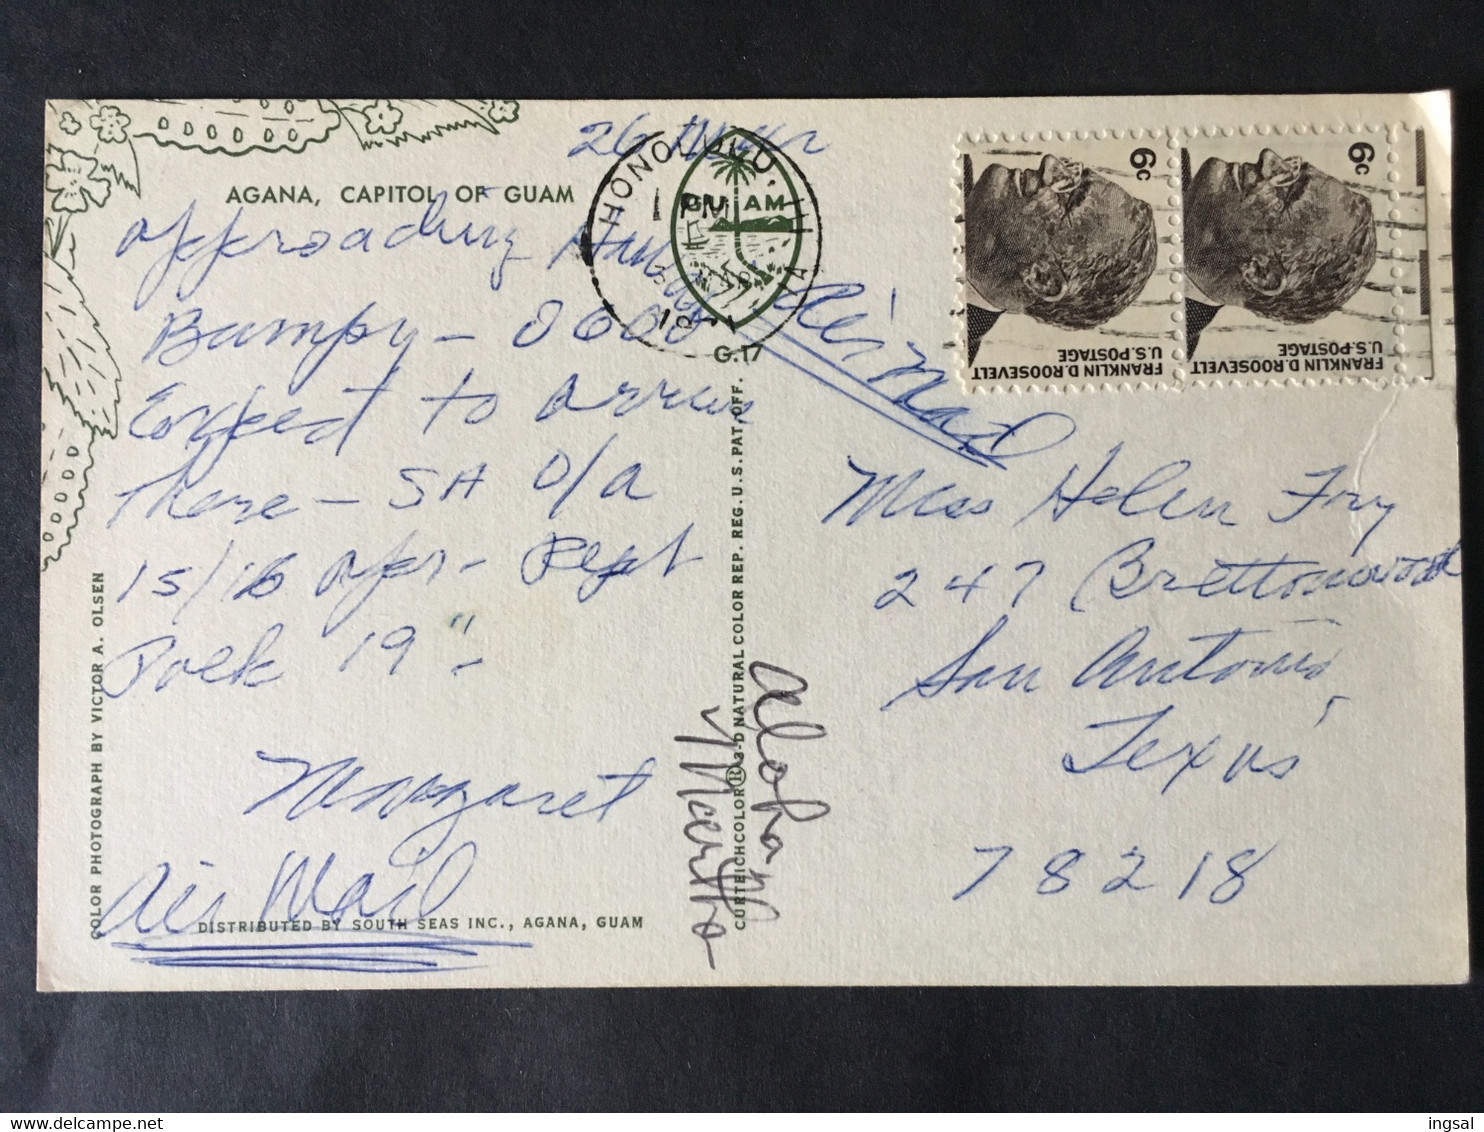 AGANA, CAPITOL OF GUAM
26
approaching
Bumpy - 0600
Expect to arrive
there - SA O/A
15/16 apr - Dept
19" -
Margaret
Air Mail
DISTRIBUTED BY SOUTH SEAS INC., AGANA, GUAM
COLOR PHOTOGRAPH BY VICTOR A. OLSEN
HONOLULU, HI
1 PM
GUAM
G.17
CURTEICHCOLOR® 3-D NATURAL COLOR REP. REG. U.S. PAT. OFF.
Aloha
Martha
Air Mail
6c
FRANKLIN D. ROOSEVELT
U.S. POSTAGE
6c
FRANKLIN D. ROOSEVELT
U.S. POSTAGE
Miss Helen Fry
247 Brettonwood
San Antonio,
Texas
78218
ingsal